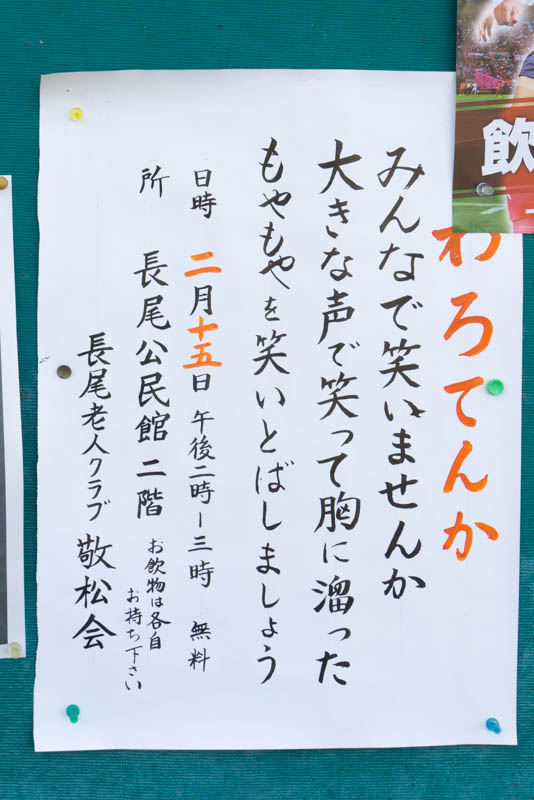 飲
わろてんか
みんなで笑いませんか
大きな声で笑って胸に溜った
もやもやを笑いとばしましょう
日時 二月十五日 午後二時ー三時 無料
所 長尾公民館 二階 お飲物は各自
お持ち下さい
長尾老人クラブ 敬松会